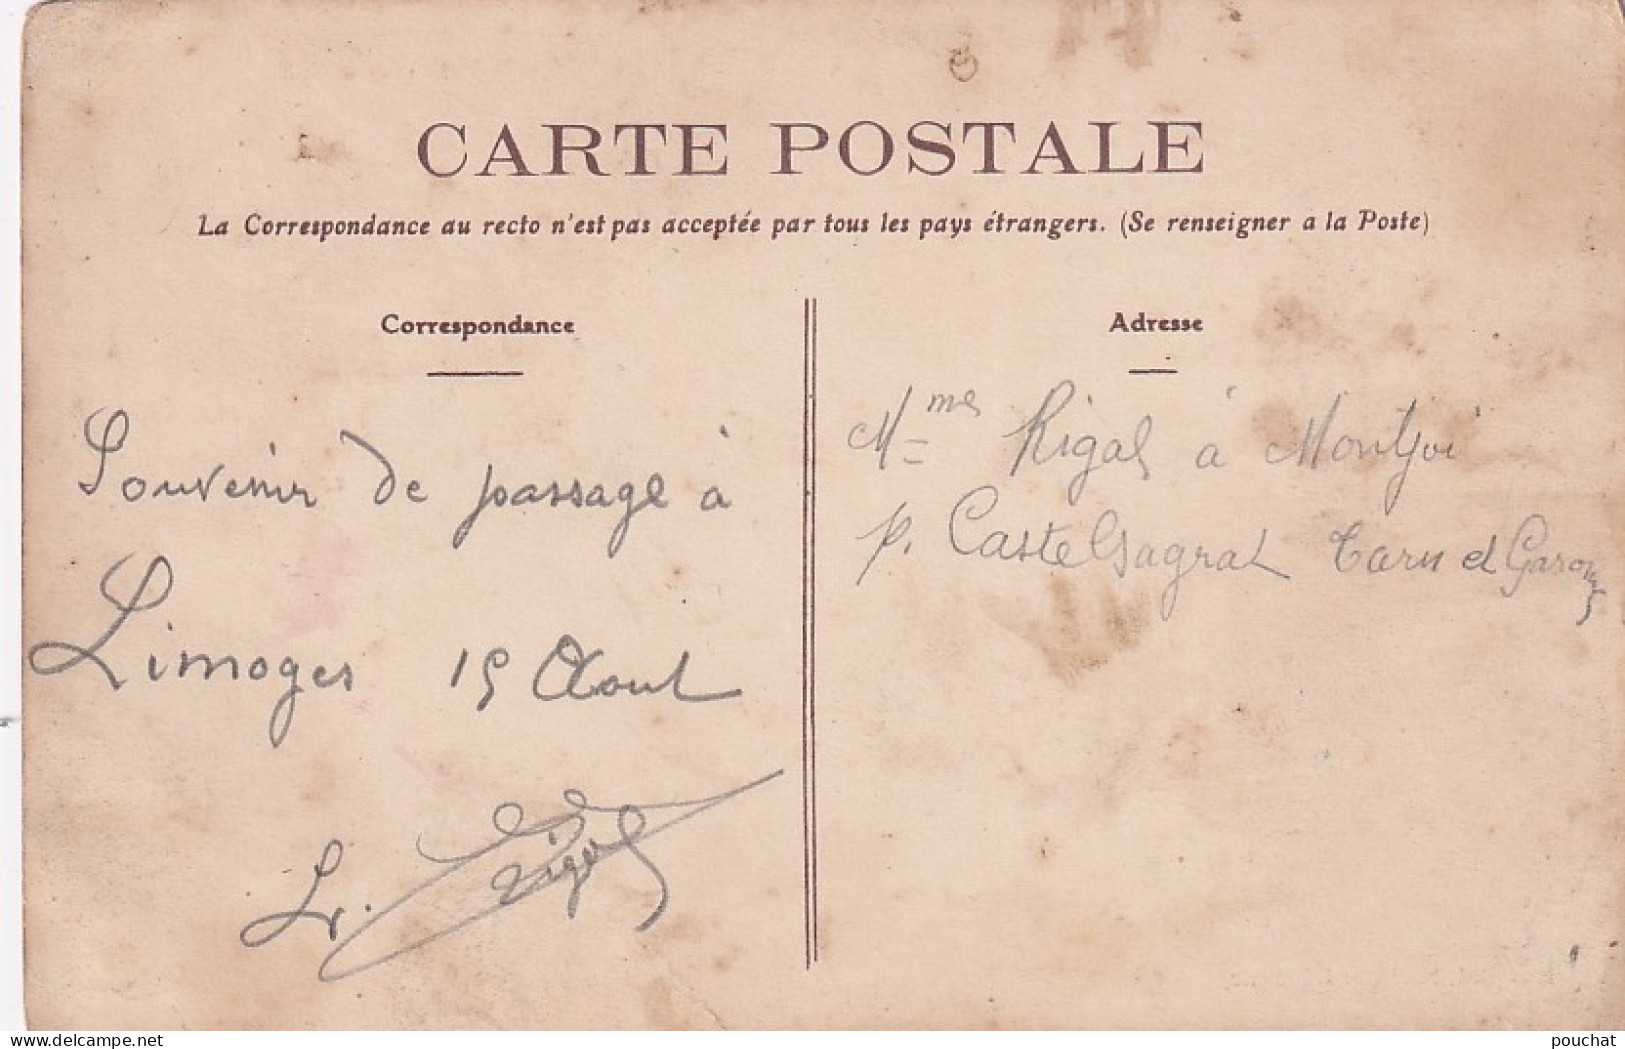 CARTE POSTALE
La Correspondance au recto n'est pas acceptée par tous les pays étrangers. (Se renseigner a la Poste)
Correspondance
Souvenir de passage à
Limoges 15 Aout
Lr. Rigal
Adresse
Mme Rigal à Montjoi
p. Castelsagrat Tarn et Garonne
www.delcampe.net
pouchat